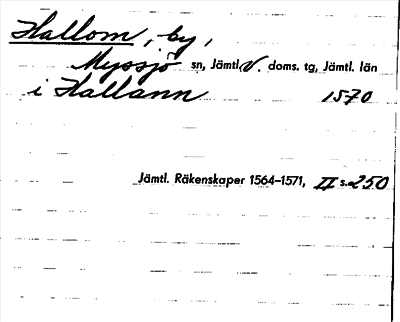 Hallom, by,
Myssjö sn, Jämtl. V. doms. tg, Jämtl. län
i Hallann 1570
Jämtl. Räkenskaper 1564-1571, II s. 250